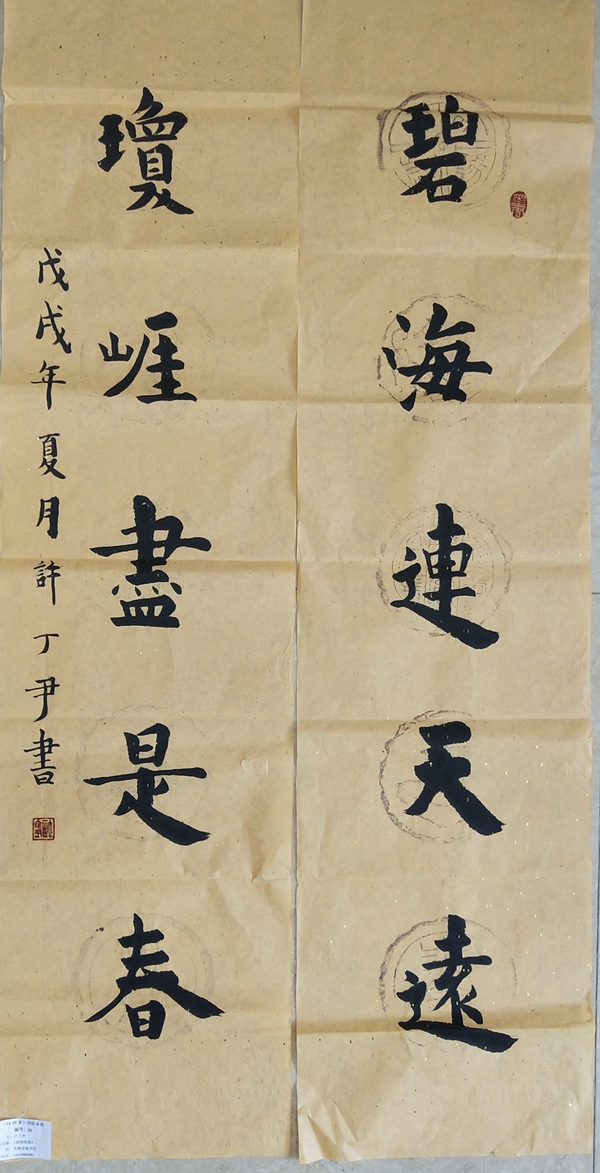 碧海連天遠
瓊崕盡是春
戊戌年夏月許丁尹書